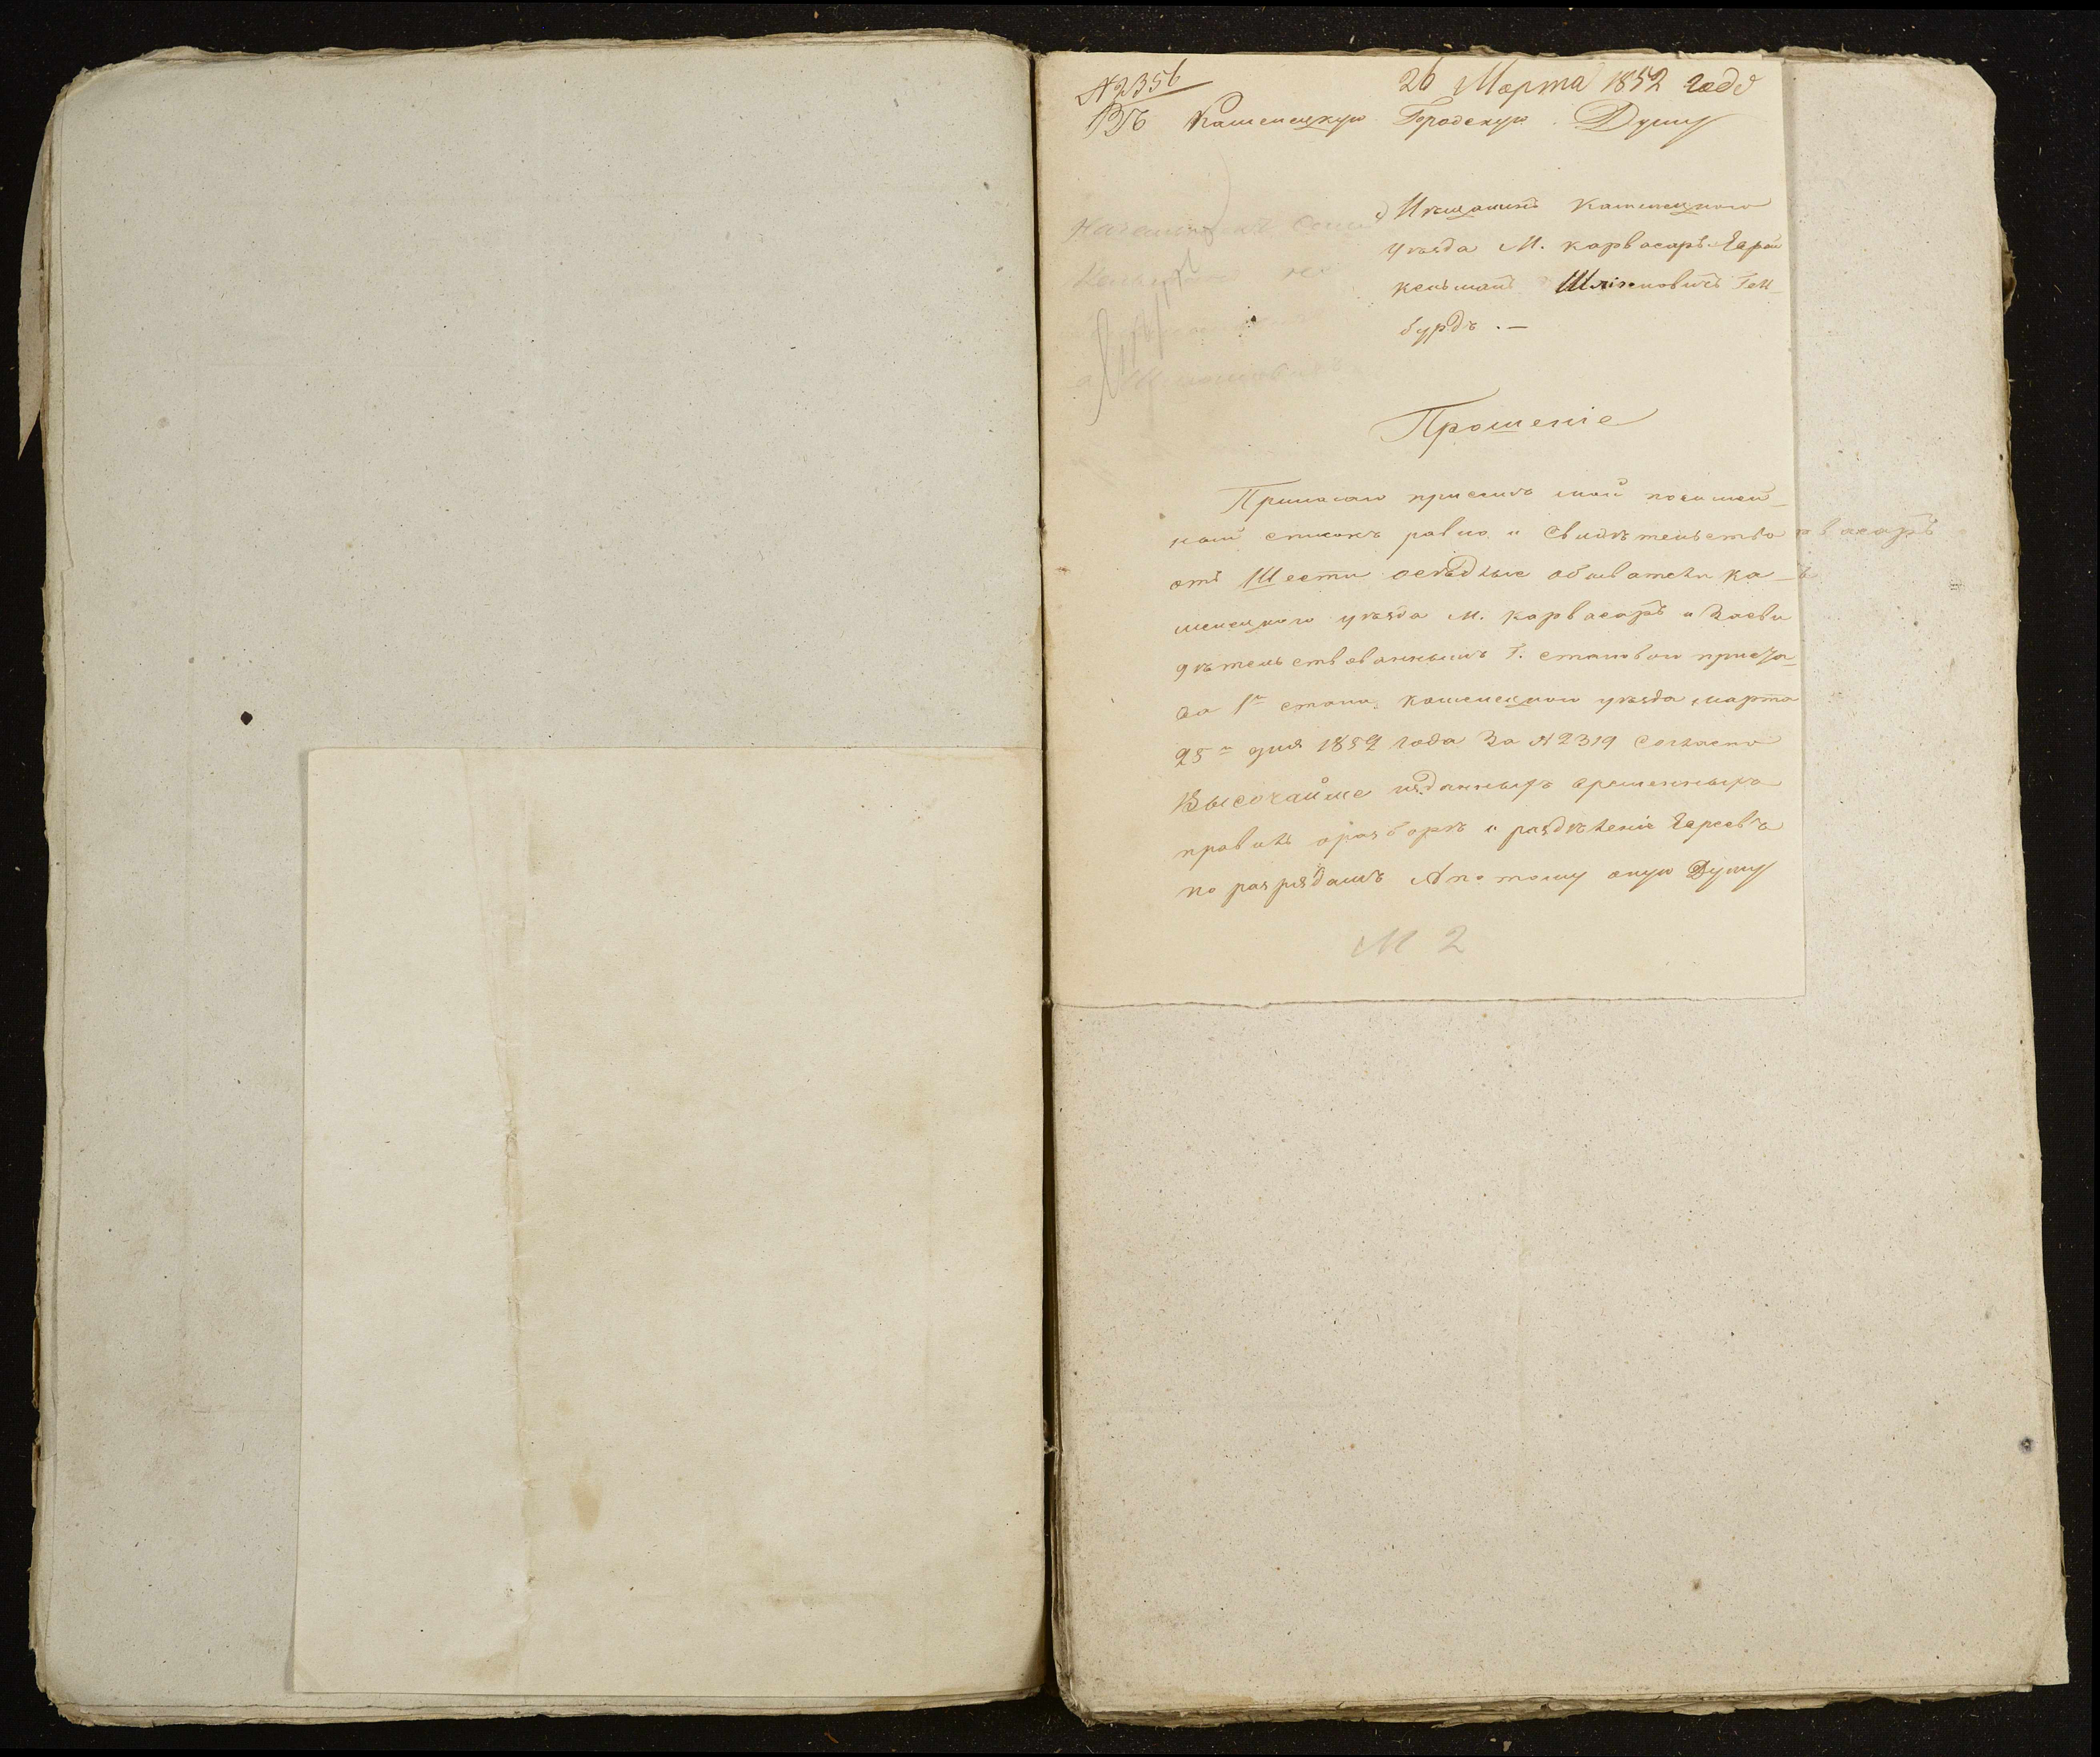 № 2356
26 Марта 1852 года
Въ Каменецкую Городскую Думу
Мѣщанинъ Каменецкого
уѣзда М. Карвасаръ Еврей
Кельманъ Шліомовичъ Ген
бурдъ. —
Прошеніе
Прилагаю присемъ мой посимей-
ный списокъ равно и Свидѣтельство
отъ Шести осѣдлые обывателя Ка-
менецкого уѣзда М. Карвасаръ и Засви
дѣтельствованнымъ Г. становым приста-
ва 1го стана Каменецкого уѣзда марта
25го дня 1852 года За № 2319 Согласно
Высочайше изданныхъ временныхъ
правилъ оразборѣ и раздѣленіе Евреевъ
по разрядамъ А потому оную Думу
М 2